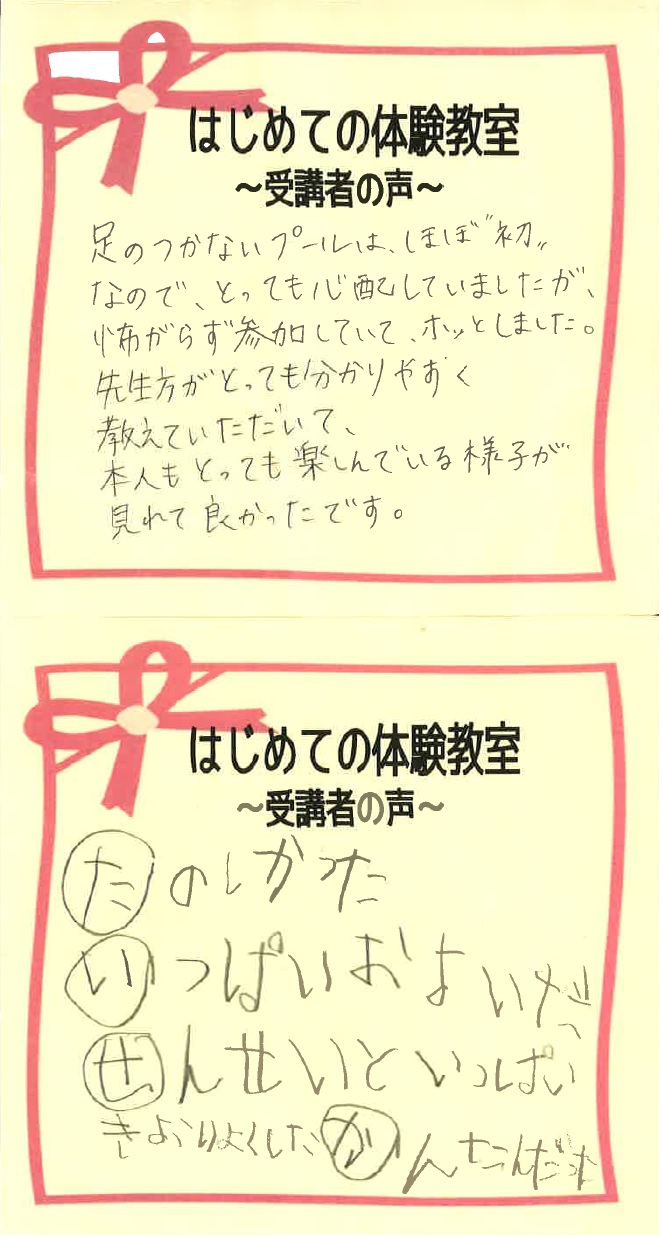 はじめての体験教室
~受講者の声~
足のつかないプールは、ほぼ〝初〟
なので、とっても心配していましたが、
怖がらず参加していて、ホッとしました。
先生方がとっても分かりやすく
教えていただいて、
本人もとっても楽しんでいる様子が
見れて良かったです。
はじめての体験教室
~受講者の声~
たのしかった
いっぱいおよいだ
せんせいといっぱい
きょうりょくした かんたんだった